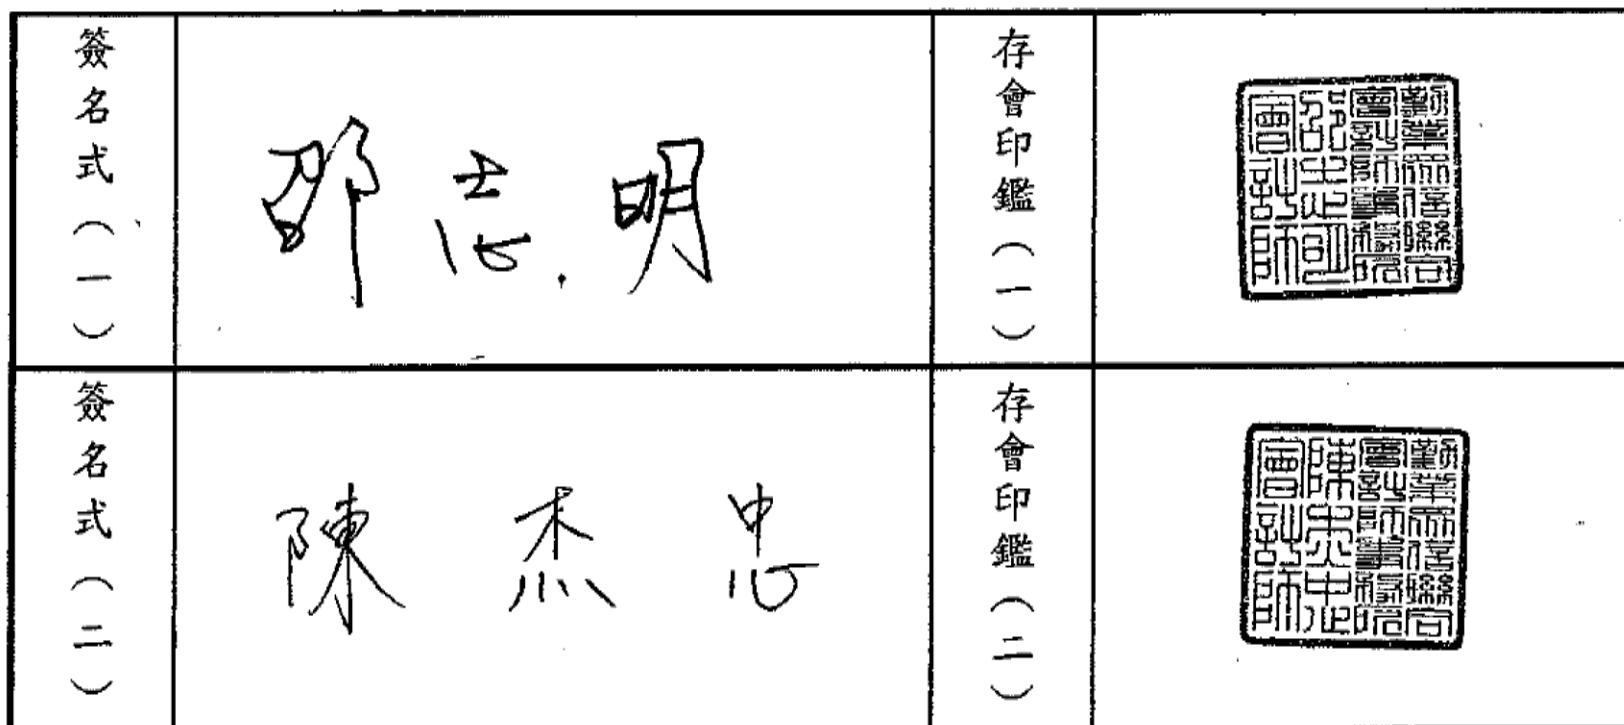 簽名式(一)
邵志明
存會印鑑(一)
勤業眾信聯合
會計師事務所
邵志明
會計師
簽名式(二)
陳杰忠
存會印鑑(二)
勤業眾信聯合
會計師事務所
陳杰忠
會計師